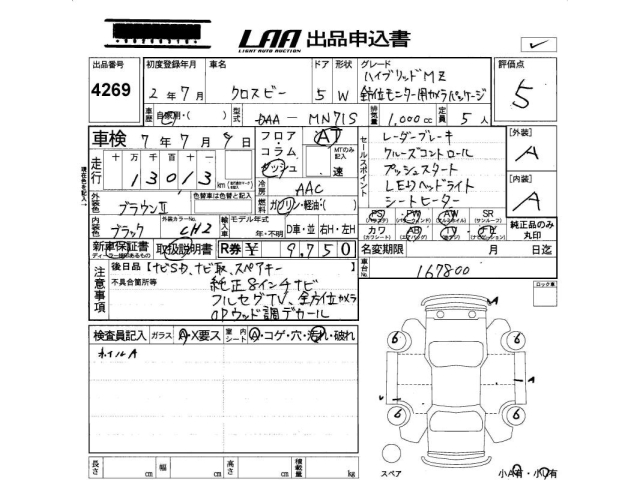 LAA 出品申込書
LIGHT AUTO AUCTION
出品番号
4269
初度登録年月
2年7月
車名
クロスビー
ドア
5
形状
W
グレード
ハイブリッドMZ
全方位モニター用カメラパッケージ
評価点
5
車歴
自家用・( )
型式
DAA-MN71S
排気量
1,000cc
定員
5人
車検
7年7月9日
フロア・コラム
ダッシュ
AT
MTのみ記入
速
セールスポイント
レーダーブレーキ
クルーズコントロール
プッシュスタート
LEDヘッドライト
シートヒーター
[外装]
A
[内装]
A
走行
十万千百十
13013km
冷房
AAC
外装色
ブラウンII
色替車は色替と記入
燃料
ガソリン・軽油・( )
内装色
ブラック
外装カラーNo.
CH2
輸入車
モデル年式
年・不明
D車・並
右H・左H
PS
PW
AW
SR
カワ
AB
TV
純正品のみ丸印
新車保証書
ディーラー様のあるもの
取扱説明書
R券¥
9,750
名変期限
月
日迄
注意事項
後日品【ナビSD、ナビ取、スペアキー
不具合箇所等
純正8インチナビ
フルセグTV、全方位カメラ
OPウッド調デカール
車台No.
167800
ロック車
検査員記入
ガラス
A・X要ス
室内シート
A・コゲ・穴・汚れ・破れ
ホイルA
A
6
6
A
6
6
スペア
小A有・小U有
長さ
cm
幅
cm
高さ
cm
積載量
kg